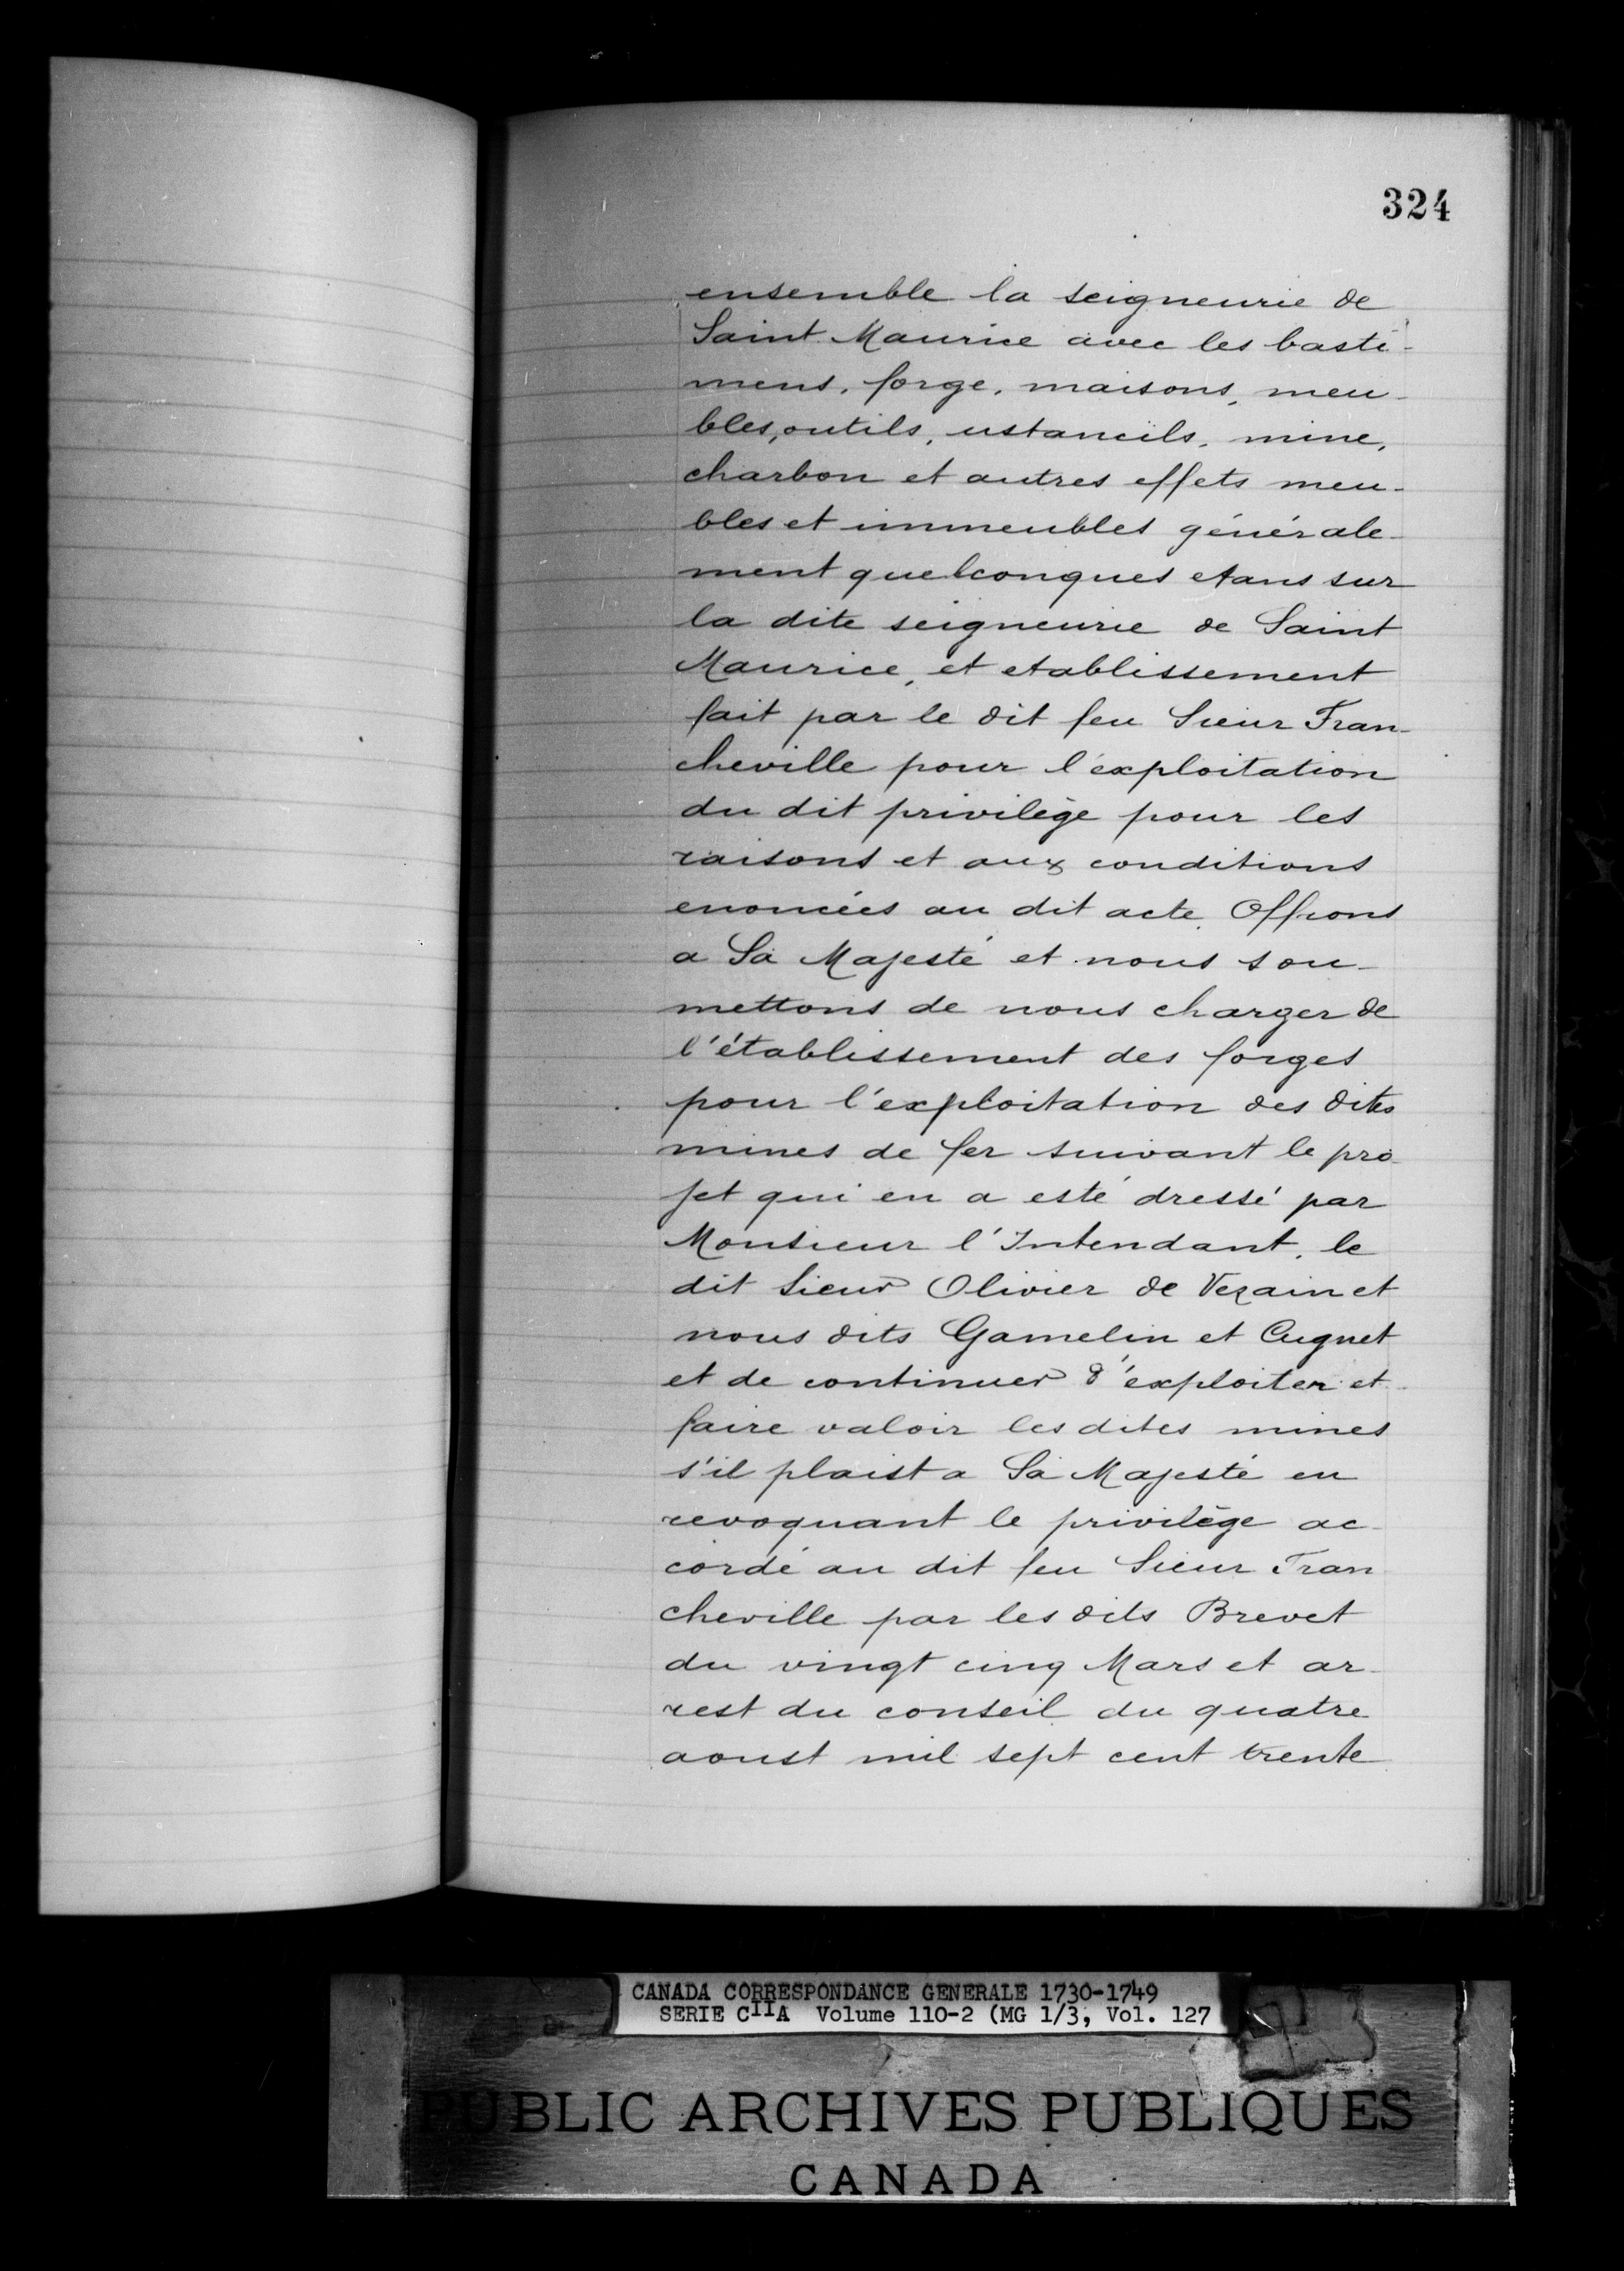 324
ensemble la seigneurie de
Saint Maurice avec les basti-
mens, forge, maisons, meu-
bles, outils, ustanciils, mine,
charbon et autres effets meu-
bles et immeubles générale-
ment quelconques etans sur
la dite seigneurie de Saint
Maurice, et etablissement
fait par le dit feu Sieur Fran-
cheville pour l'exploitation
du dit privilège pour les
raisons et aux conditions
enoncées au dit acte. Offrons
a Sa Majesté et nous sou-
mettons de nous charger de
l'établissement des forges
pour l'exploitation des dites
mines de fer suivant le pro-
jet qui en a esté dressé par
Monsieur l'Intendant, le
dit Sieur Olivier de Vezain et
nous dits Gamelin et Cugnet
et de continuer d'exploiter et
faire valoir les dites mines
s'il plaist a Sa Majesté en
revoquant le privilège ac-
cordé au dit feu Sieur Fran
cheville par les dits Brevet
du vingt cinq Mars et ar-
rest du conseil du quatre
aoust mil sept cent trente
CANADA CORRESPONDANCE GENERALE 1730-1749
SERIE CIIA Volume 110-2 (MG 1/3, Vol. 127
PUBLIC ARCHIVES PUBLIQUES
CANADA